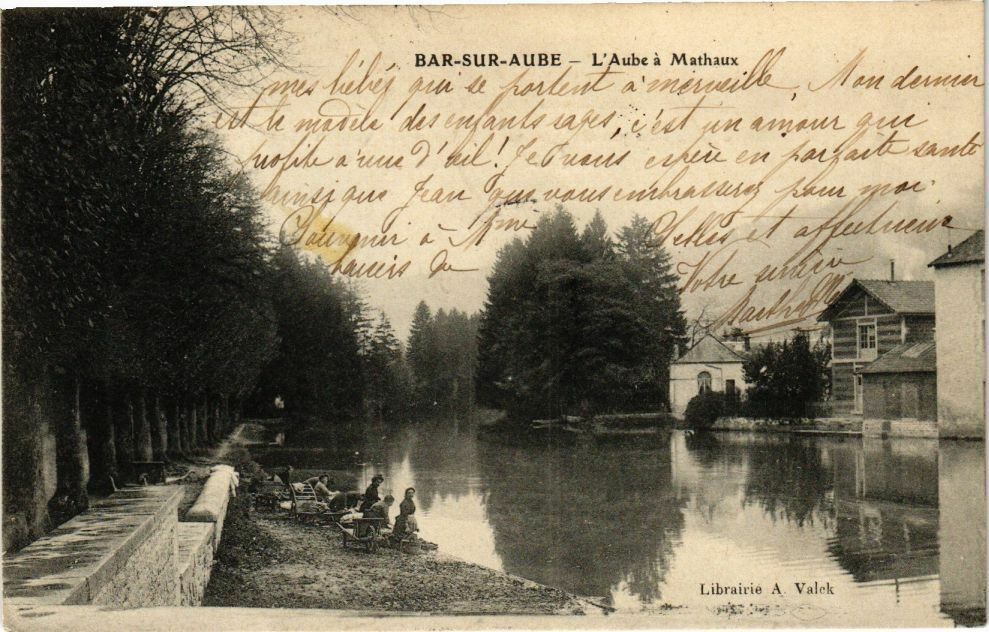 BAR-SUR-AUBE — L'Aube à Mathaux
mes bébés qui se portent à merveille, Mon dernier
est le modèle des enfants sages, c'est un amour qui
profite à vue d'œil! Je vous espère en parfaite santé
ainsi que Jean que vous embrasserez pour moi.
Souvenir à Mme
Belles et affectueux
baisers de
Votre
Marthe
Librairie A. Valck